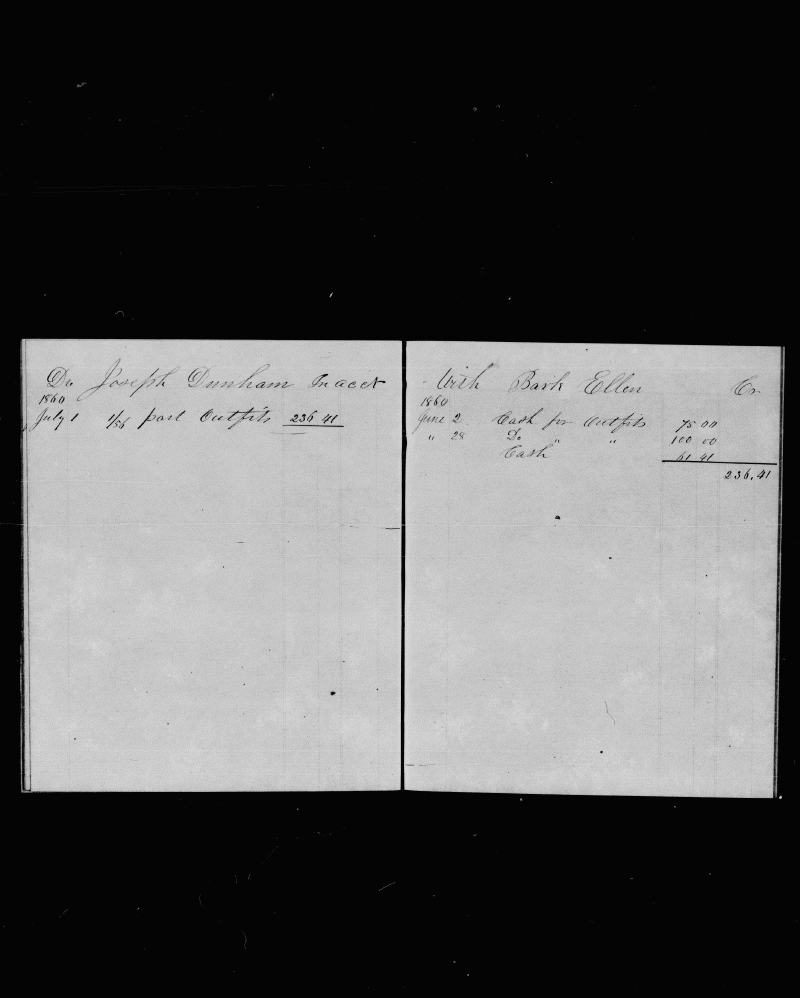 Dr. Joseph Dunham In acct
1860
July 1 1/56 part Outfits 236 41
With Bark Ellen Cr
1860
June 2 Cash for Outfits 75 00
" 28 Do " " 100 00
Cash 61 41
236.41